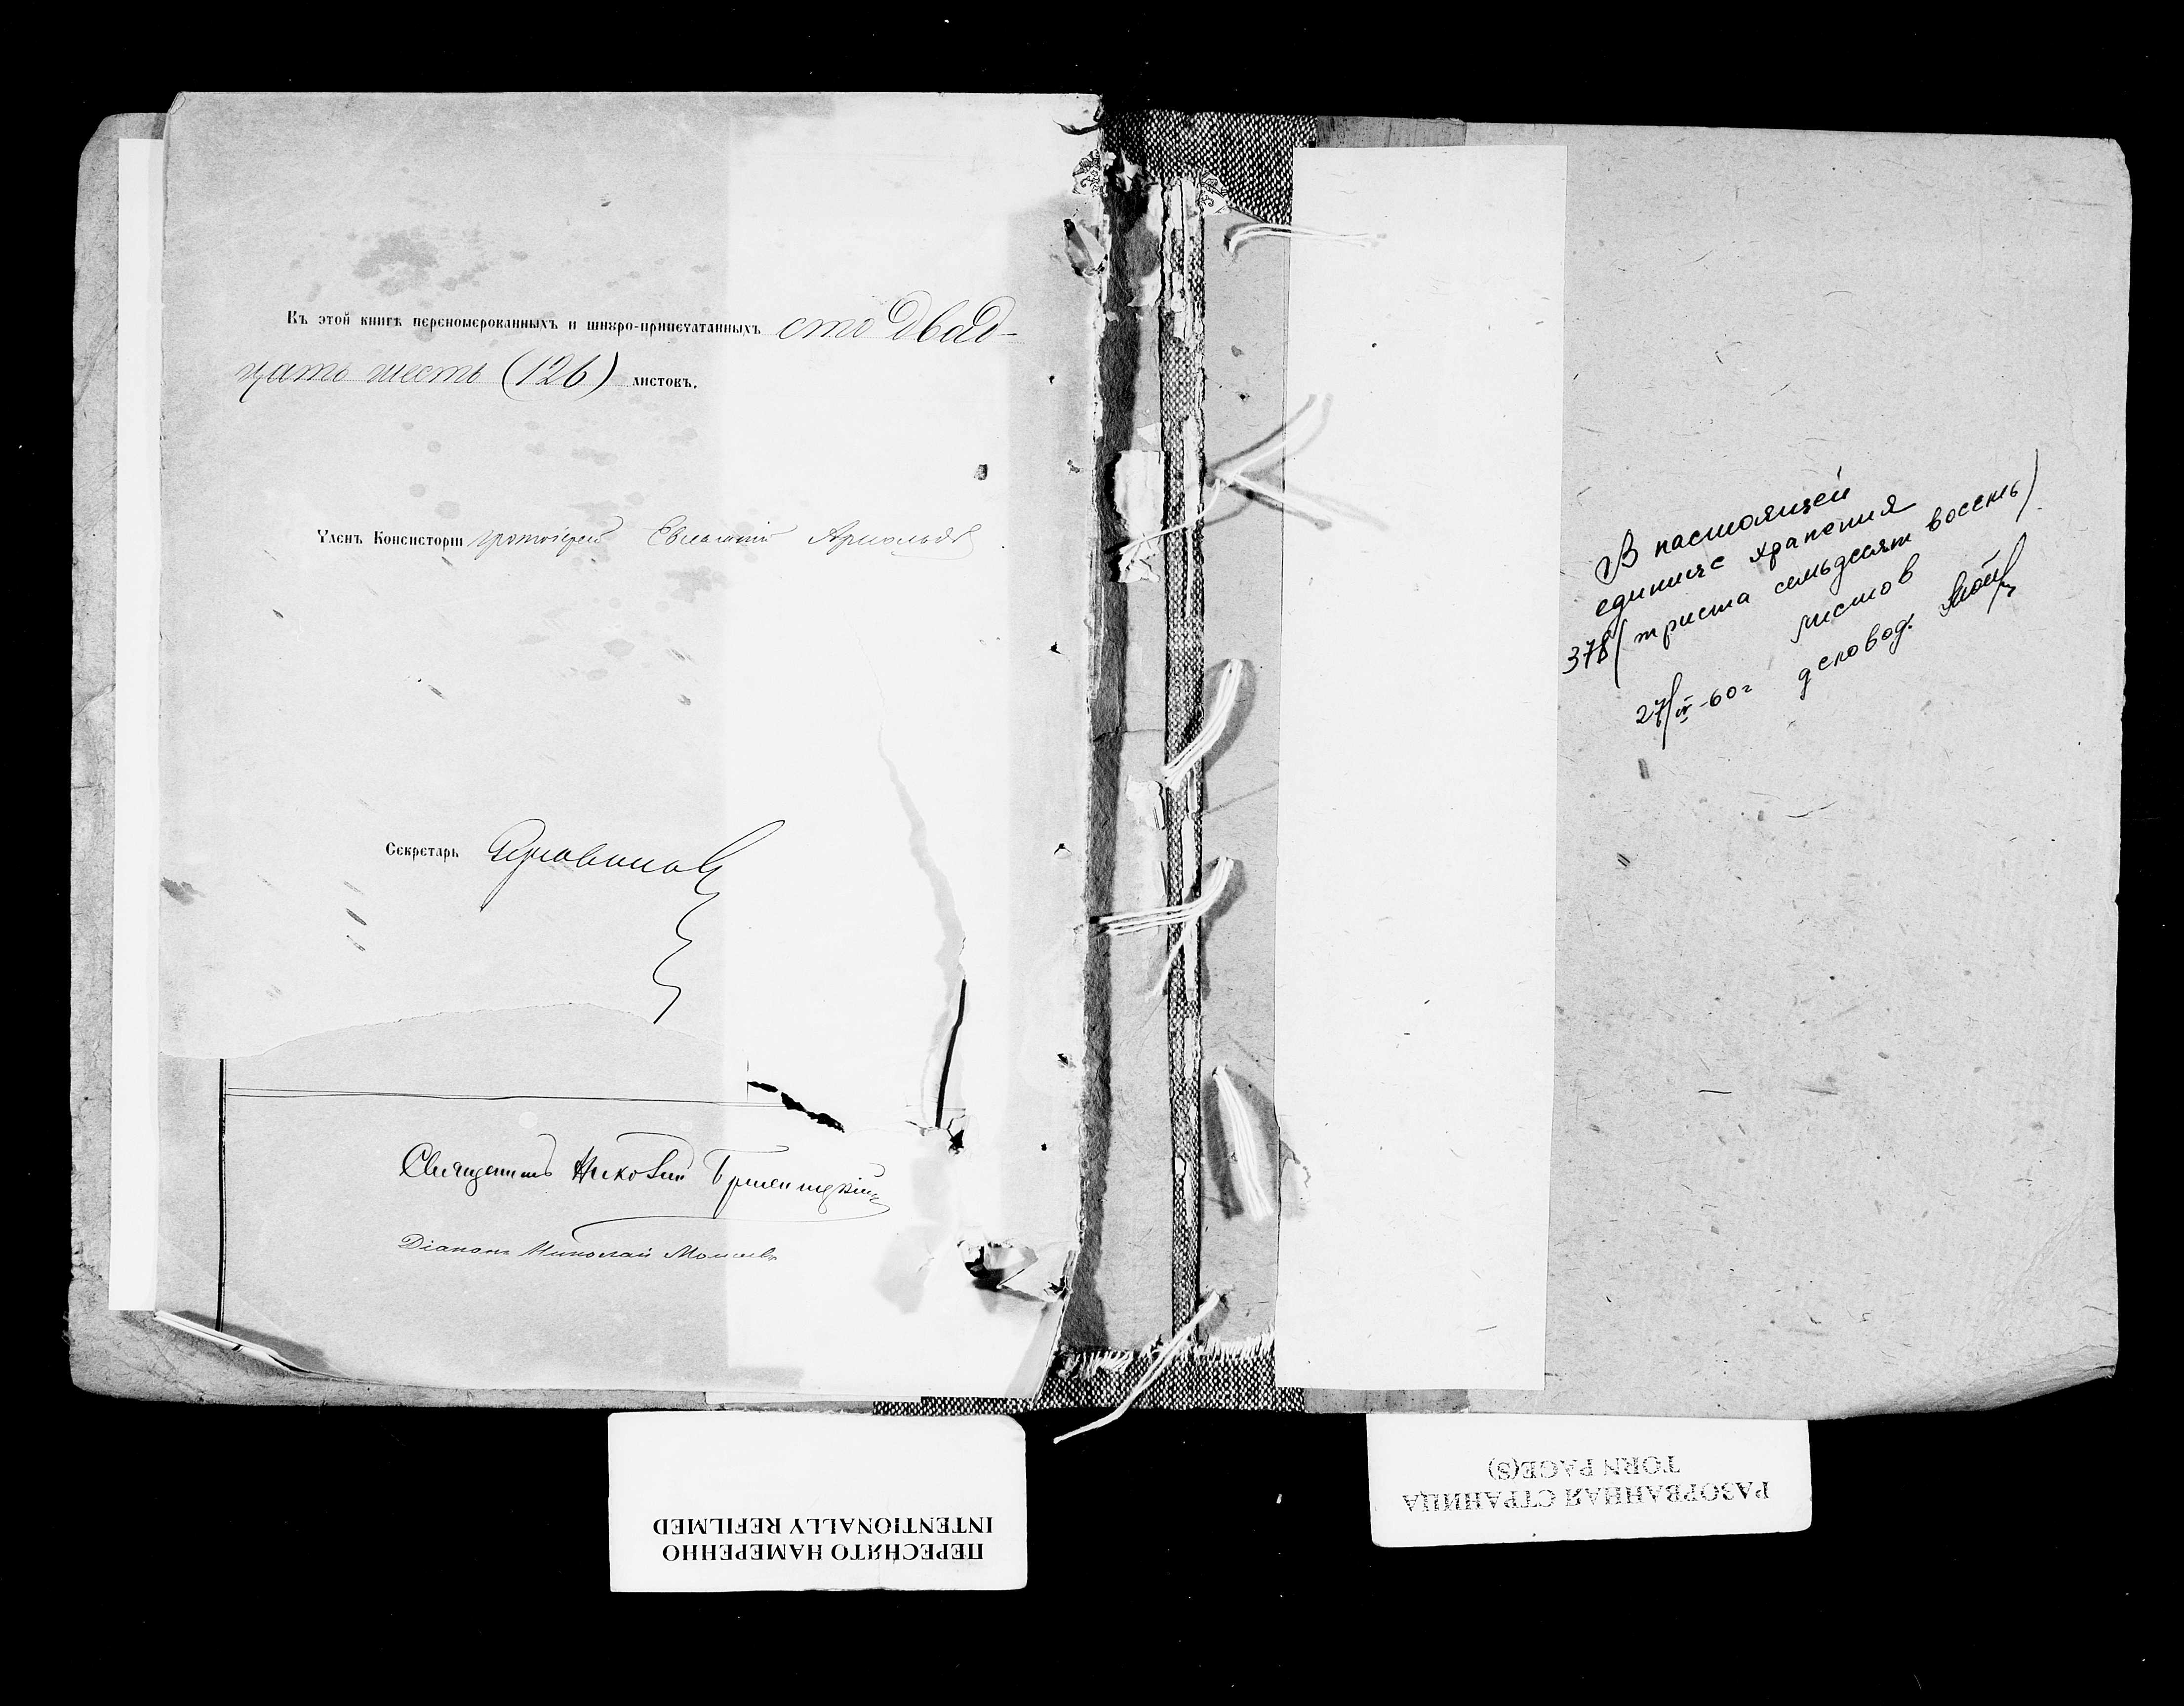 Въ этой книгѣ переномерованныхъ и шнуро-припечатанныхъ сто двад-
цать шесть (126) листовъ.
Членъ Консисторіи протоіерей Евлампій Арнольдовъ
Секретарь
Священникъ Николай
Діаконъ Николай
В настоящей
единице хранения
378 (триста семьдесят восемь)
листов
27/IV-60г деловод.
ПЕРЕСНЯТО НАМЕРЕННО
INTENTIONALLY REFILMED
РАЗОРВАННАЯ СТРАНИЦА
TORN PAGE(S)